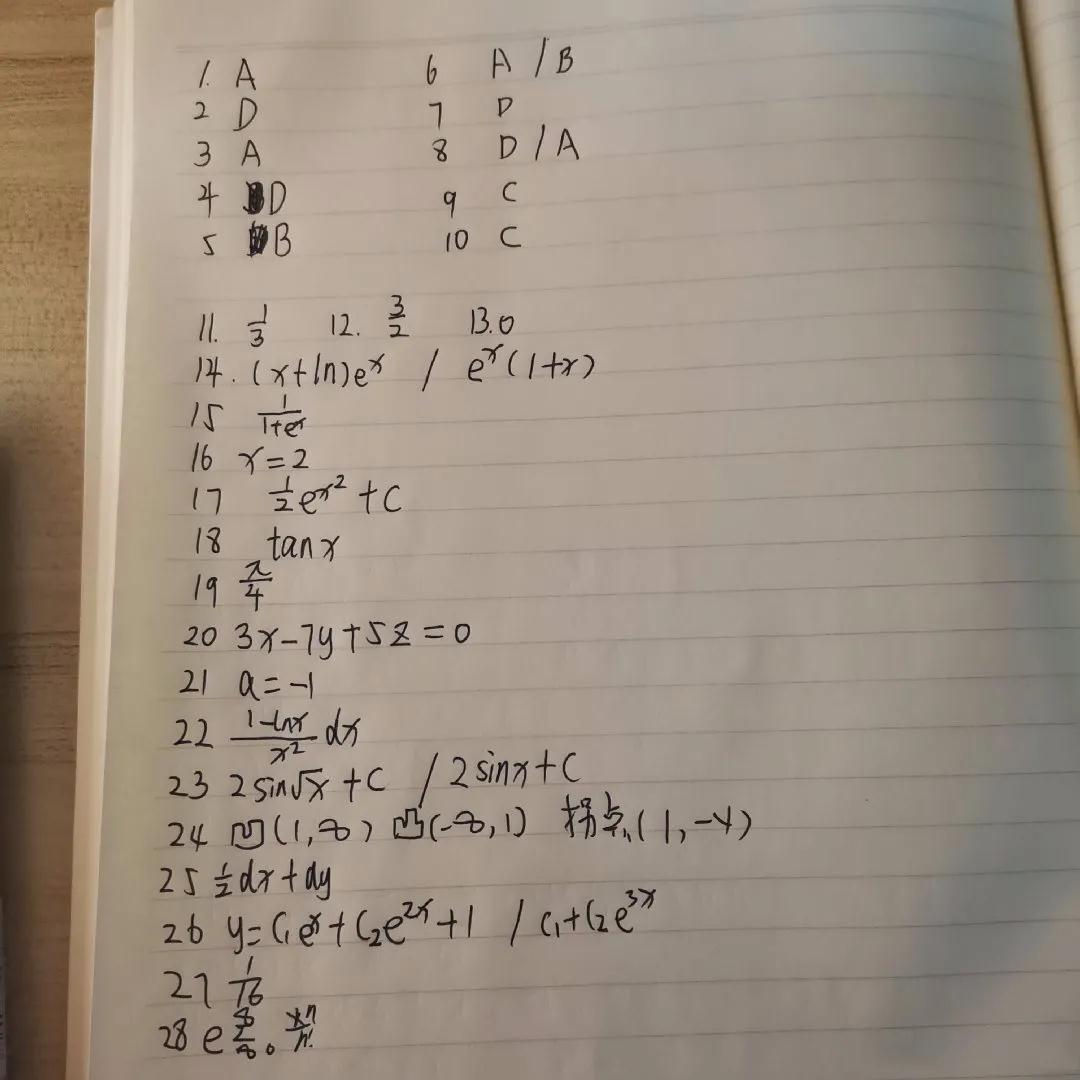 1. A 6 A / B
2 D 7 D
3 A 8 D / A
4 D 9 C
5 B 10 C
11. 1/3 12. 3/2 13.0
14. (x+ln)e^x / e^x(1+x)
15 1/(1+e^x)
16 x=2
17 1/2 e^x² +C
18 tanx
19 π/4
20 3x-7y+5z=0
21 a=-1
22 (1-lnx)/x² dx
23 2sin√x +C / 2sinx+C
24 凹(1,∞) 凸(-∞,1) 拐点(1,-4)
25 1/2dx+dy
26 y=C₁e^x+C₂e^2x+1 / C₁+C₂e^3x
27 1/16
28 e